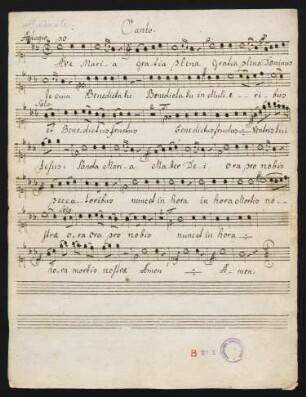 Canto.
Adagio po
Ave Mari-a Gratia plena Gratia plena Dominus
te cum Benedicta tu Benedicta tu in Muli-e-ribus
Solo
Et Benedictus fructus Benedictus fructus Ventris tui
Jesus: Sancta Mari-a Mater De-i ora pro nobis
pecca-toribus nunc et in hora in hora Mortis no-
stræ o-ra ora pro nobis nunc et in hora
hora mortis nostræ Amen A-men.
B